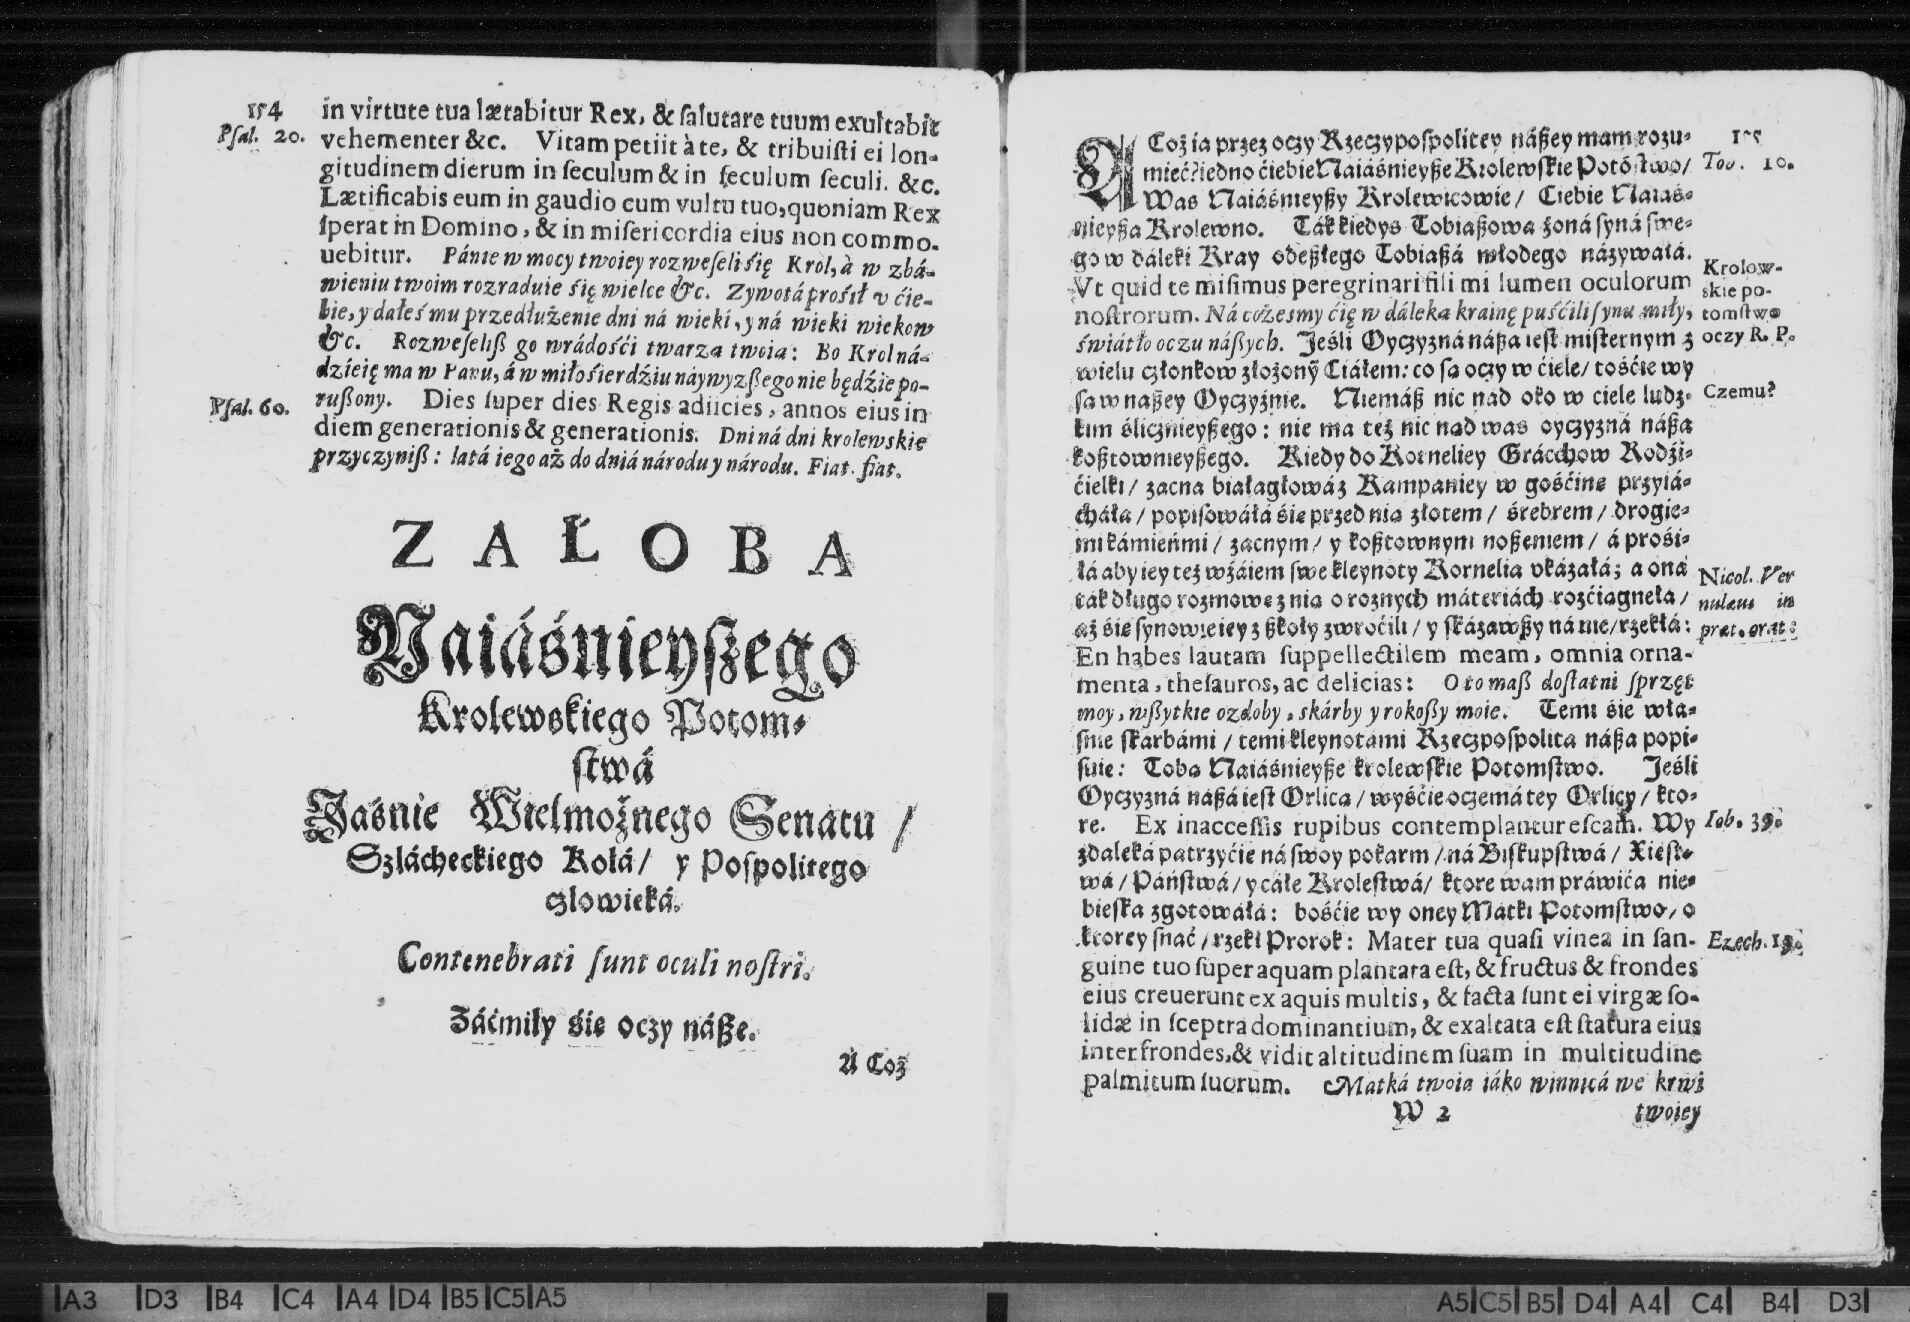 154
in virtute tua lætabitur Rex, & ſalutare tuum exultabit
Pſal. 20.
vehementer &c. Vitam petiit à te, & tribuiſti ei lon-
gitudinem dierum in ſeculum & in ſeculum ſeculi. &c.
Lætificabis eum in gaudio cum vultu tuo, quoniam Rex
ſperat in Domino, & in miſericordia eius non commo-
uebitur. Pánie w mocy twoiey rozweſeli śię Krol, à w zbá-
wieniu twoim rozraduie śię wielce &c. Zywotá prośił v ćie-
bie, y dałeś mu przedłużenie dni ná wieki, y ná wieki wiekow
&c. Rozweſeliß go w rádośći twarzą twoią: Bo Krol ná-
dzieię ma w Panu, á w miłośierdźiu naywyzßego nie będźie po-
rußony. Dies ſuper dies Regis adiicies, annos eius in
Pſal. 60.
diem generationis & generationis. Dni ná dni krolewskie
przyczyniß: latá iego aż do dniá národu y národu. Fiat. fiat.
ZAŁOBA
Naiáśnieyſzego
Krolewskiego Potom-
ſtwá
Jaśnie Wielmożnego Senatu /
Szlácheckiego Kołá / y Poſpolitego
człowieká.
Contenebrati ſunt oculi noſtri.
Záćmiły śie oczy náße.
A Coż
A Coż ia przez oczy Rzeczypoſpolitey náßey mam rozu-
mieć? iedno ćiebie Naiáśnieyße Krolewſkie Potōſtwo /
Tob. 10.
Was Naiáśnieyßy Krolewicowie / Ciebie Naiáś-
nieyßa Krolewno. Ták kiedyś Tobiaßowa żoná ſyná ſwe-
go w dáleki Kray odeßłego Tobiaßá młodego názywáłá.
Krolow-
skie po-
tomſtwo
oczy R. P.
Vt quid te miſimus peregrinari fili mi lumen oculorum
noſtrorum. Ná cożeſmy ćię w dáleka krainę puśćili ſynu miły,
świátło oczu náßych. Jeśli Oyczyzná náßa ieſt miſternym z
wielu członkow złożonỹ Ciáłem: co ſą oczy w ćiele / tośćie wy
ſą w naßey Oyczyźnie. Niemáß nic nád oko w ciele ludz-
Czemu?
kim śliczniejßego: nie ma też nic nad was oyczyzná náßa
koßtownieyßego. Kiedy do Korneliey Grácchow Rodźi-
ćielki / zacna białagłowá z Kampaniey w gośćinę przyiá-
cháła / popiſowáłá śie przed nią złotem / śrebrem / drogie-
mi kámieńmi / zacnym / y koßtownym noßeniem / á prośi-
łá aby iey też wzáiem ſwe kleynoty Kornelia vkázałá; a oná
Nicol. Ver
nulæus in
præt. orat:
ták długo rozmowę z nią o roznych máteriách rozćiągnełá /
aż śie ſynowie iey z ßkoły zwroćili / y ſkázawßy ná nie / rzekłá:
En habes lautam ſuppellectilem meam, omnia orna-
menta, theſauros, ac delicias: Oto maß doſtatni ſprzęt
moy, wßytkie ozdoby, skárby y rokoßy moie. Temi śie wła-
śnie ſkarbámi / temi kleynotámi Rzeczpoſpolita náßa popi-
ſuie: Tobą Naiáśnieyße krolewſkie Potomſtwo. Jeśli
Oyczyzná náßá ieſt Orlica / wyśćie oczemá tey Orlicy / kto-
re. Ex inacceſſis rupibus contemplantur eſcam. Wy
Iob. 39.
zdaleká patrzyćie ná ſwoy pokarm / ná Biskupſtwá / Xieſt-
wá / Páńſtwá / y cáłe Kroleſtwá / ktore wam práwicá nie-
bieſka zgotowáłá: bośćie wy oney Matki Potomſtwo / o
ktorey ſnać / rzekł Prorok: Mater tua quaſi vinea in ſan-
Ezech. 19.
guine tuo ſuper aquam plantata eſt, & fructus & frondes
eius creuerunt ex aquis multis, & facta ſunt ei virgæ ſo-
lidæ in ſceptra dominantium, & exaltata eſt ſtatura eius
inter frondes, & vidit altitudinem ſuam in multitudine
palmitum ſuorum. Matká twoia iáko winnicá we krwi
W 2
twoiey
A3 D3 B4 C4 A4 D4 B5 C5 A5
A5 C5 B5 D4 A4 C4 B4 D3